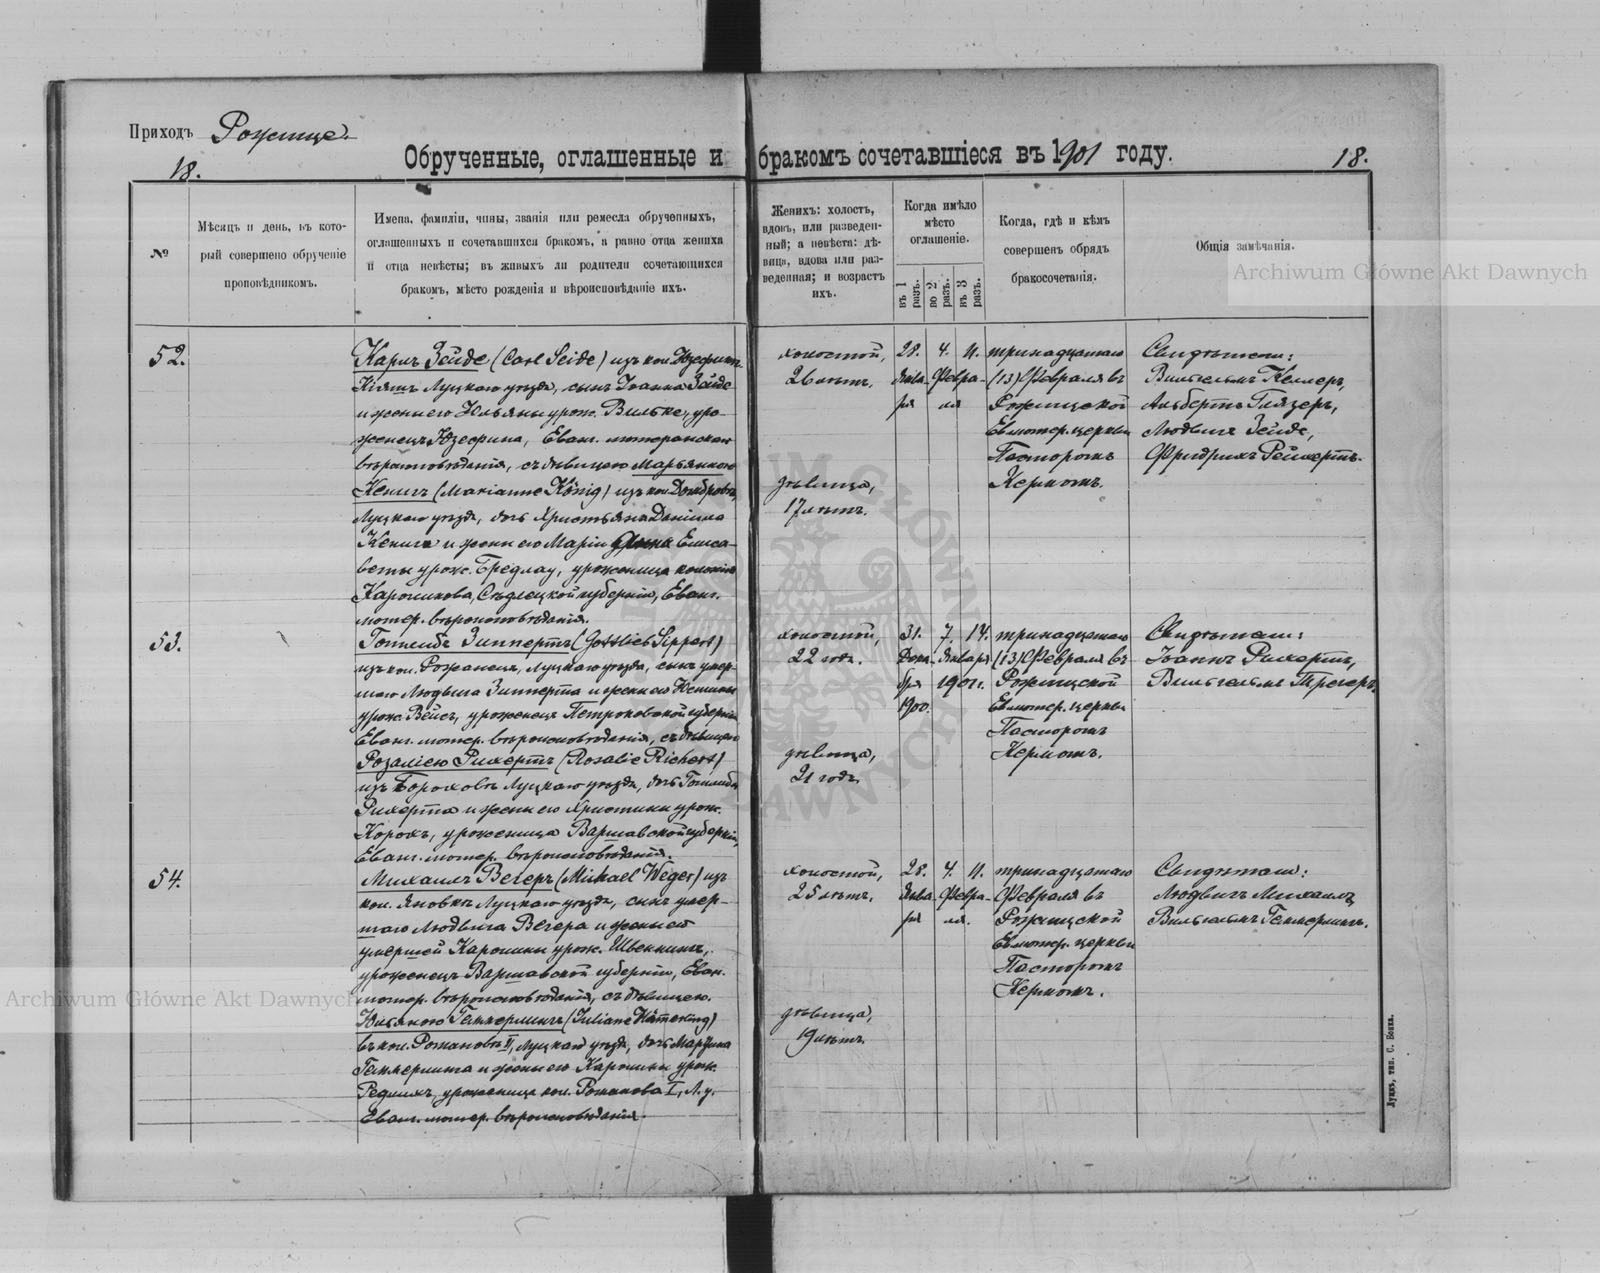 Приходъ Рожище.
18.
Обрученные, оглашенные и бракомъ сочетавшіеся въ 1901 году.
18.
№
Мѣсяцъ и день, въ кото-
рый совершено обрученіе
проповѣдникомъ.
Имена, фамиліи, чины, званія или ремесла обрученныхъ,
оглашенныхъ и сочетавшихся бракомъ, а равно отца жениха
и отца невѣсты; въ живыхъ ли родители сочетающихся
бракомъ, мѣсто рожденія и вѣроисповѣданіе ихъ.
Женихъ: холостъ,
вдовъ, или разведен-
ный; а невѣста: дѣ-
вица, вдова или раз-
веденная; и возрастъ
ихъ.
Когда имѣло
мѣсто
оглашеніе.
въ 1 разъ.
во 2 разъ.
въ 3 разъ.
Когда, гдѣ и кѣмъ
совершенъ обрядъ
бракосочетанія.
Общія замѣчанія.
Archiwum Główne Akt Dawnych
52.
Карлъ Зейде (Carl Seide) изъ кол. Юзефинъ
Луцкаго уѣзда, сынъ Іоанна Зейде
и жены его Юльяны урож. Вильке, уро-
женецъ Юзефина, Еванг. лютеранскаго
вѣроисповѣданія, съ дѣвицею Марьянною
Кенигъ (Marianne König) изъ кол. Домбровъ,
Луцкаго уѣзда, дочь Христьяна Даніила
Кенига и жены его Маріи Анна Елиса-
веты урож. Бредлау, уроженица колоніи
Каролинова, Сѣдлецкой губерніи, Еванг.
лютер. вѣроисповѣданія.
холостой,
26 лѣтъ.
дѣвица,
17 лѣтъ.
28. 4. 11.
Янва- Февра-
ря ля
тринадцатаго
(13) Февраля въ
Рожищской
Ев. лютер. церкви
Пасторомъ
Кермомъ.
Свидѣтели:
Вильгельмъ Келлеръ,
Альбертъ Глязеръ,
Людвигъ Зейде,
Фридрихъ Рейхертъ.
53.
Готлибъ Зиппертъ (Gottlieb Sippert)
изъ кол. Рожанецъ, Луцкаго уѣзда, сынъ умер-
шаго Людвига Зипперта и жены его
урож. Вейсъ, уроженецъ Петроковской губерніи
Еванг. лютер. вѣроисповѣданія, съ дѣвицею
Розаліею Рихертъ (Rosalie Richert)
изъ Борохова Луцкаго уѣзда, дочь Готлиба
Рихерта и жены его Христины урож.
Корохъ, уроженица Варшавской губерніи,
Еванг. лютер. вѣроисповѣданія.
холостой,
22 годъ.
дѣвица,
21 годъ.
31. 7. 14.
Дека- Января
бря 1901 г.
1900.
тринадцатаго
(13) Февраля въ
Рожищской
Ев. лютер. церкви
Пасторомъ
Кермомъ.
Свидѣтели:
Іоаннъ Рихертъ,
Вильгельмъ Трегеръ.
54.
Михаилъ Вегеръ (Michael Weger) изъ
кол. Яновка Луцкаго уѣзда, сынъ умер-
шаго Людвига Вегера и жены его
умершей Каролины урож. Швенкингъ,
уроженецъ Варшавской губерніи, Еван.
лютер. вѣроисповѣданія, съ дѣвицею.
Юльяною Геммерлингъ (Juliane Hämerling)
въ кол. Романовъ II, Луцкаго уѣзда, дочь Мартина
Геммерлинга и жены его Каролины урож.
Редлихъ, уроженица кол. Романова I, Л. у.
Еванг. лютер. вѣроисповѣданія.
холостой,
25 лѣтъ.
дѣвица,
19 лѣтъ.
28. 4. 11.
Янва- Февра-
ря ля.
тринадцатаго
Февраля въ
Рожищской
Ев. лютер. церкви
Пасторомъ
Кермомъ.
Свидѣтели:
Людвигъ Михаилъ
Вильгельмъ Геммерлингъ.
Archiwum Główne Akt Dawnych
Луцкъ, тип. С. Бокка.